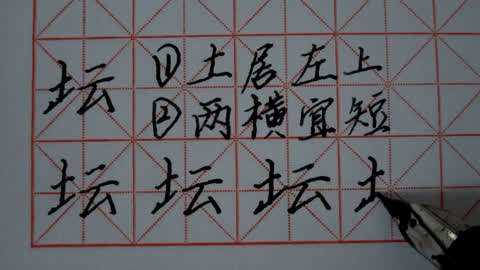 坛 ①土居左上
②两横宜短
坛 坛 坛 土